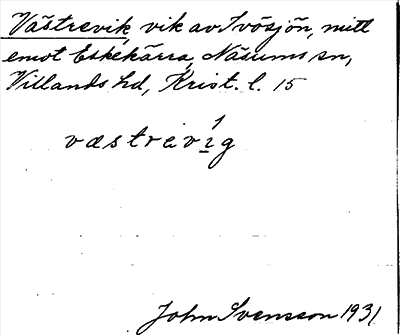 Västrevik, vik av Ivösjön, mitt
emot Eskekärra, Näsums sn,
Villands hd, Krist. l. 15
væstrevı̲́g
John Svensson 1931